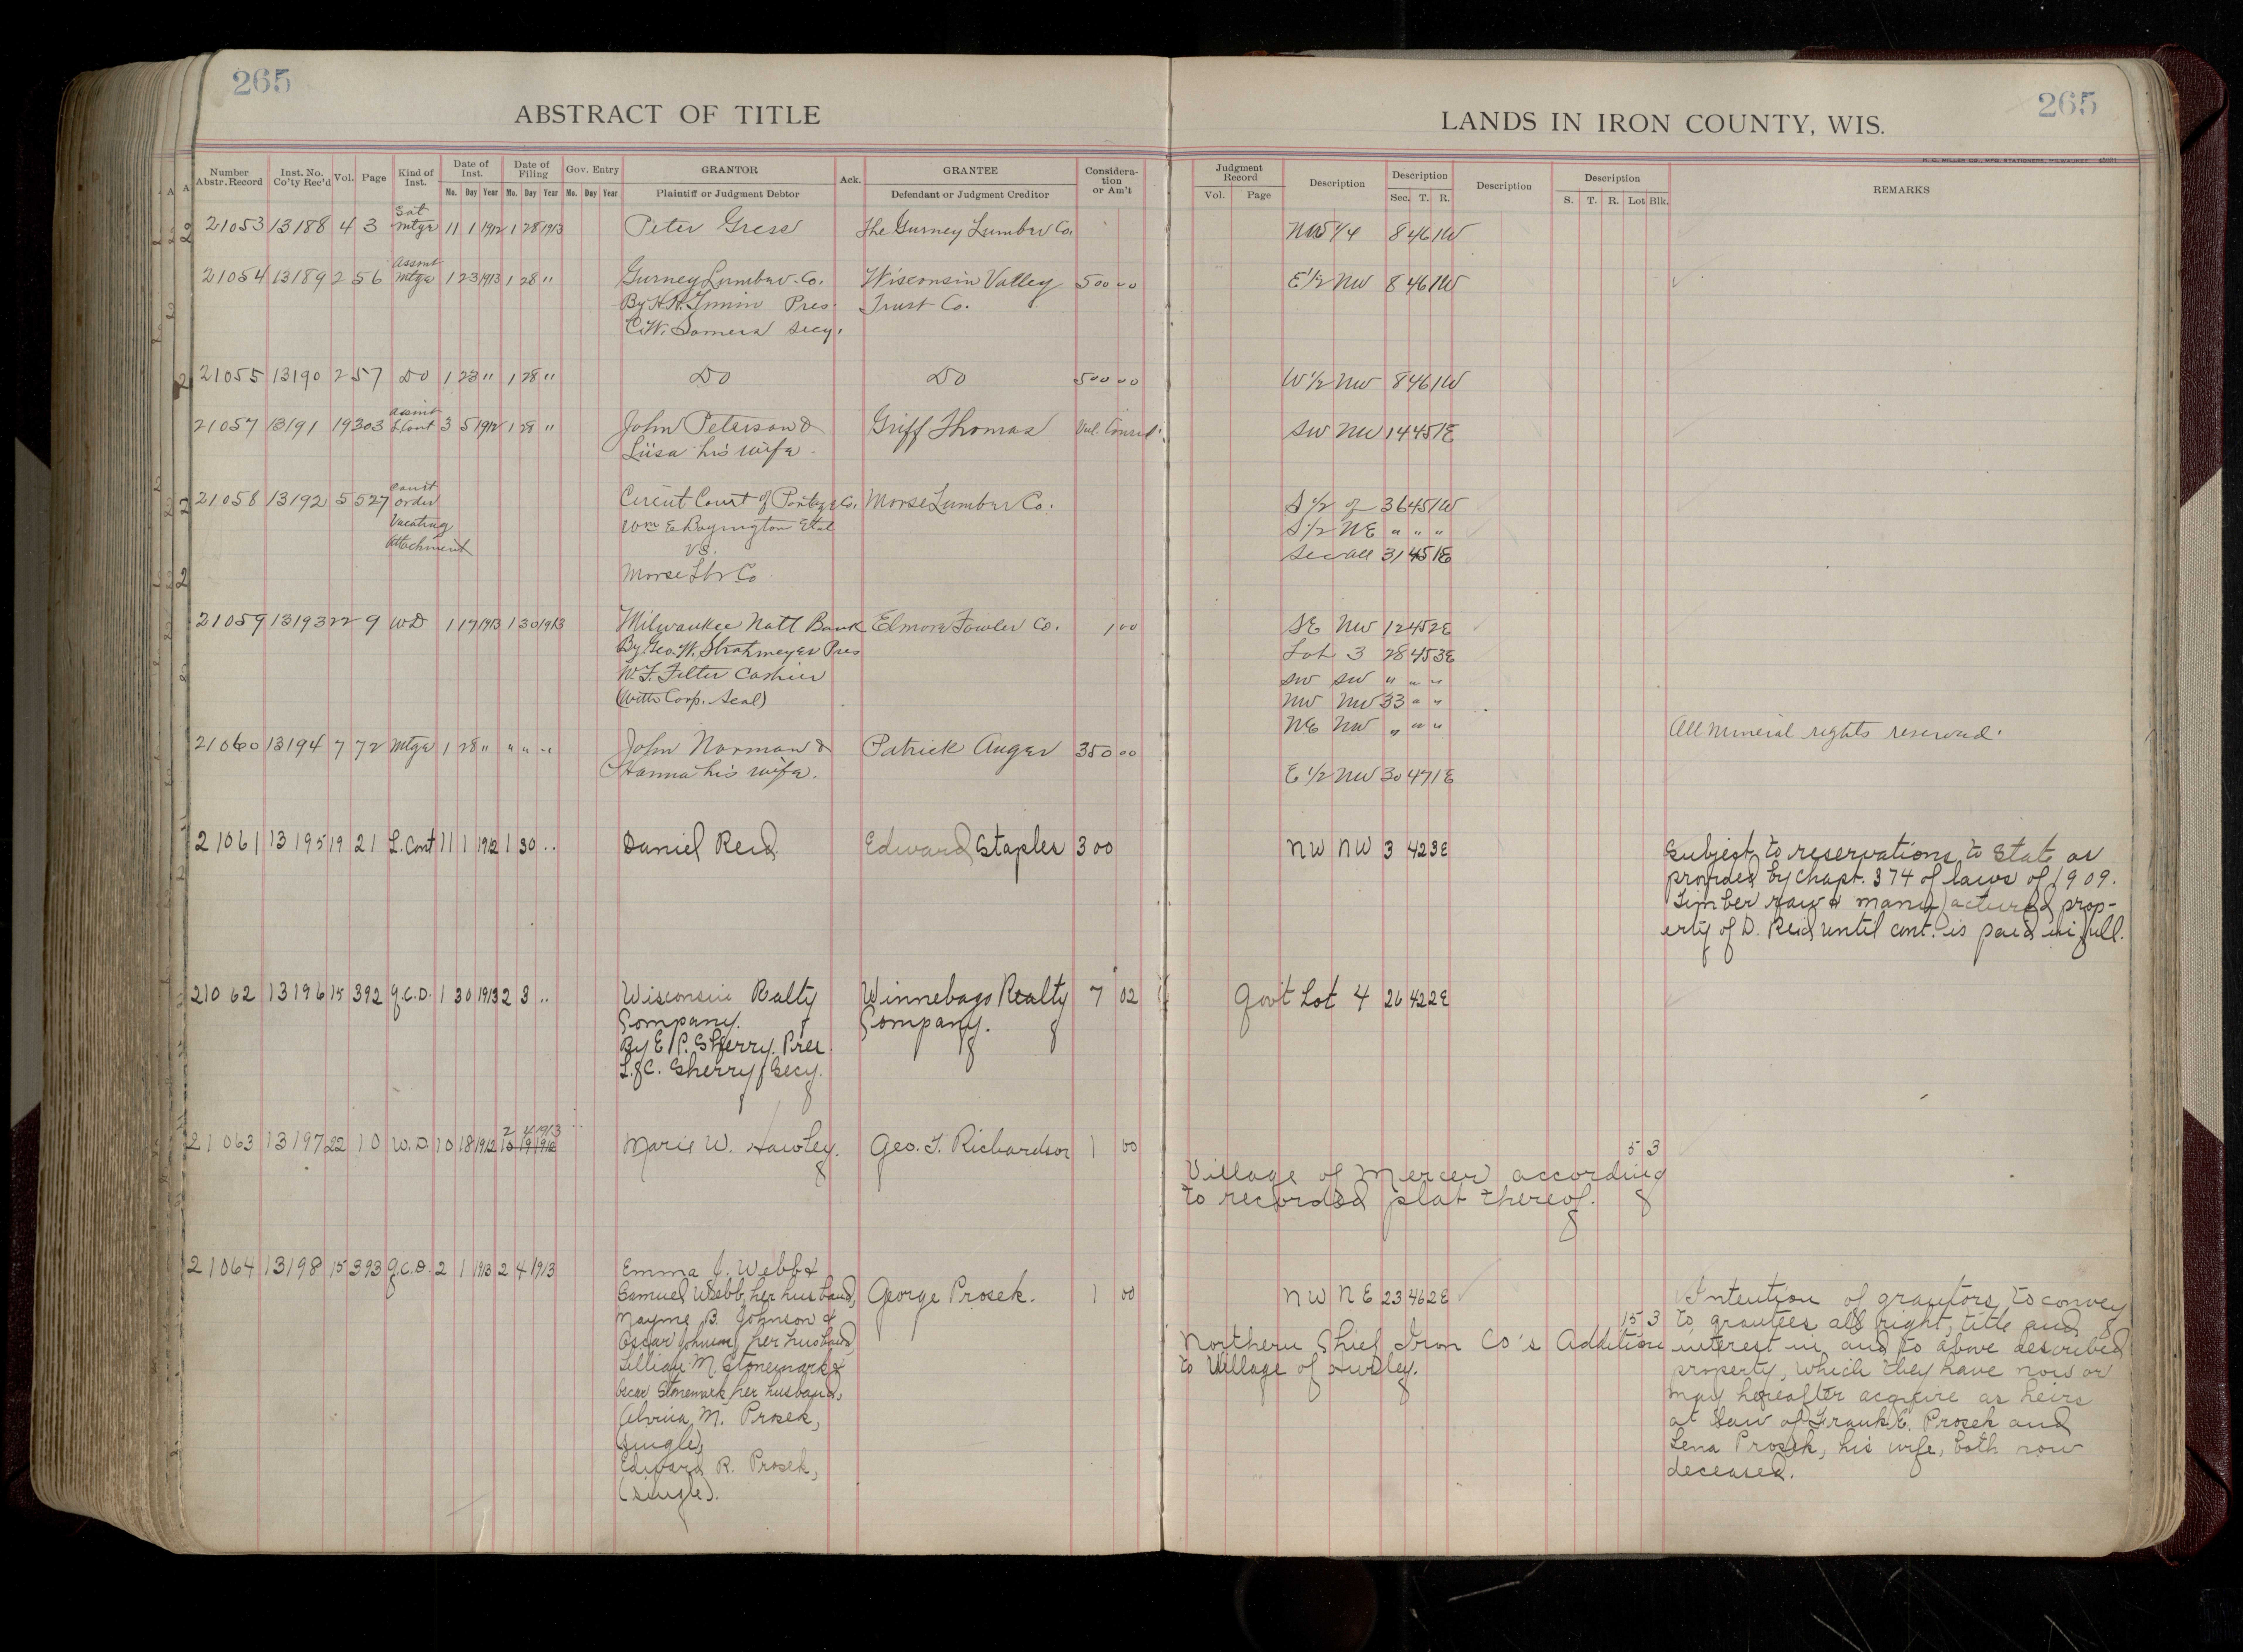 265
265
ABSTRACT OF TITLE
LANDS IN IRON COUNTY, WIS.
H. G. MILLER CO., MFG. STATIONERS, MILWAUKEE
Number Abstr. Record Inst. No. Co'ty Rec'd Vol. Page Kind of Inst. Date of Inst. Mo. Day Year Date of Filing Mo. Day Year Gov. Entry Mo. Day Year GRANTOR Plaintiff or Judgment Debtor Ack. GRANTEE Defendant or Judgment Creditor Considera-tion or Am't
Judgment Record Vol. Page Description Description Sec. T. R. Description Description S. T. R. Lot Blk. REMARKS
21053 13188 4 3 Sat Mtge 11 1 1912 1 28 1913 Peter Gress The Gurney Lumber Co. 8 46 1W
21054 13189 2 56 Assmt Mtge 1 23 1913 1 28 " Gurney Lumber Co. Wisconsin Valley 500 00 E 1/2 NW 8 46 1W
Pres. Trust Co.
C.W. Somers Secy.
21055 13190 2 57 Do 1 23 " 1 28 " Do Do 500 00 W 1/2 NW 8 46 1W
21057 13191 19 303 Assmt L. Cont 3 5 1912 1 29 " John Peterson & Griff Thomas Val. Consid. SW NW 14 45 1E
Liisa his wife.
21058 13192 5 527 Court Circuit Court of Portage Co. Morse Lumber Co. S 1/2 of 36 45 1W
order Wm E Boyington Etal S 1/2 NE " " "
Vacating vs. Sec all 31 45 1E
Attachment Morse Lbr Co
21059 13193 22 9 WD 1 17 1913 1 30 1913 Milwaukee Natl Bank Elmore Fowler Co. 1 00 SE NW 12 45 2E
By Geo. W. Strohmeyer Pres Lot 3 28 45 3E
W. F. Filter Cashier SW SW " " "
(With Corp. Seal) NW NW 33 " "
NE NW " " "
All Mineral rights reserved.
21060 13194 7 72 Mtge 1 28 " " " " John Norman & Patrick Auger 350 00
Hanna his wife. E 1/2 NW 30 47 1E
21061 13195 19 21 L. Cont 11 1 1912 1 30 .. Daniel Reid Edward Staples 300 NW NW 3 42 3E Subject to reservations to State as
provided by Chapt. 374 of laws of 1909.
Timber raw & manufactured prop-
erty of D. Reid until cont. is paid in full.
21062 13196 15 392 Q.C.D. 1 30 1913 2 3 .. Wisconsin Ralty Winnebago Realty 7 02 Gov't Lot 4 26 42 2E
Company. Company.
By E. P. Sherry Pres.
Sherry Secy.
21063 13197 22 10 W.D. 10 18 1912 2 4 1913 10 19 1912 Marie W. Hawley. Geo. T. Richardson 1 00 5 3
Village of Mercer according
to recorded plat thereof.
21064 13198 15 393 Q.C.D. 2 1 1913 2 4 1913 Emma J. Webb &
Samuel Webb, her husband, George Prosek. 1 00 NW NE 23 46 2E
Mayme B. Johnson & 15 3
Oscar Johnson, her husband, Northern Chief Iron Co's Addition
Lillian M. Stonemark & to Village of Hurley.
Oscar Stonemark, her husband,
Alvina M. Prosek,
(single),
Edward R. Prosek,
(single).
Intention of grantors to convey
to grantees all right, title and
interest in and to above described
property, which they have now or
may hereafter acquire as heirs
at law of Frank E. Prosek and
Lena Prosek, his wife, both now
deceased.